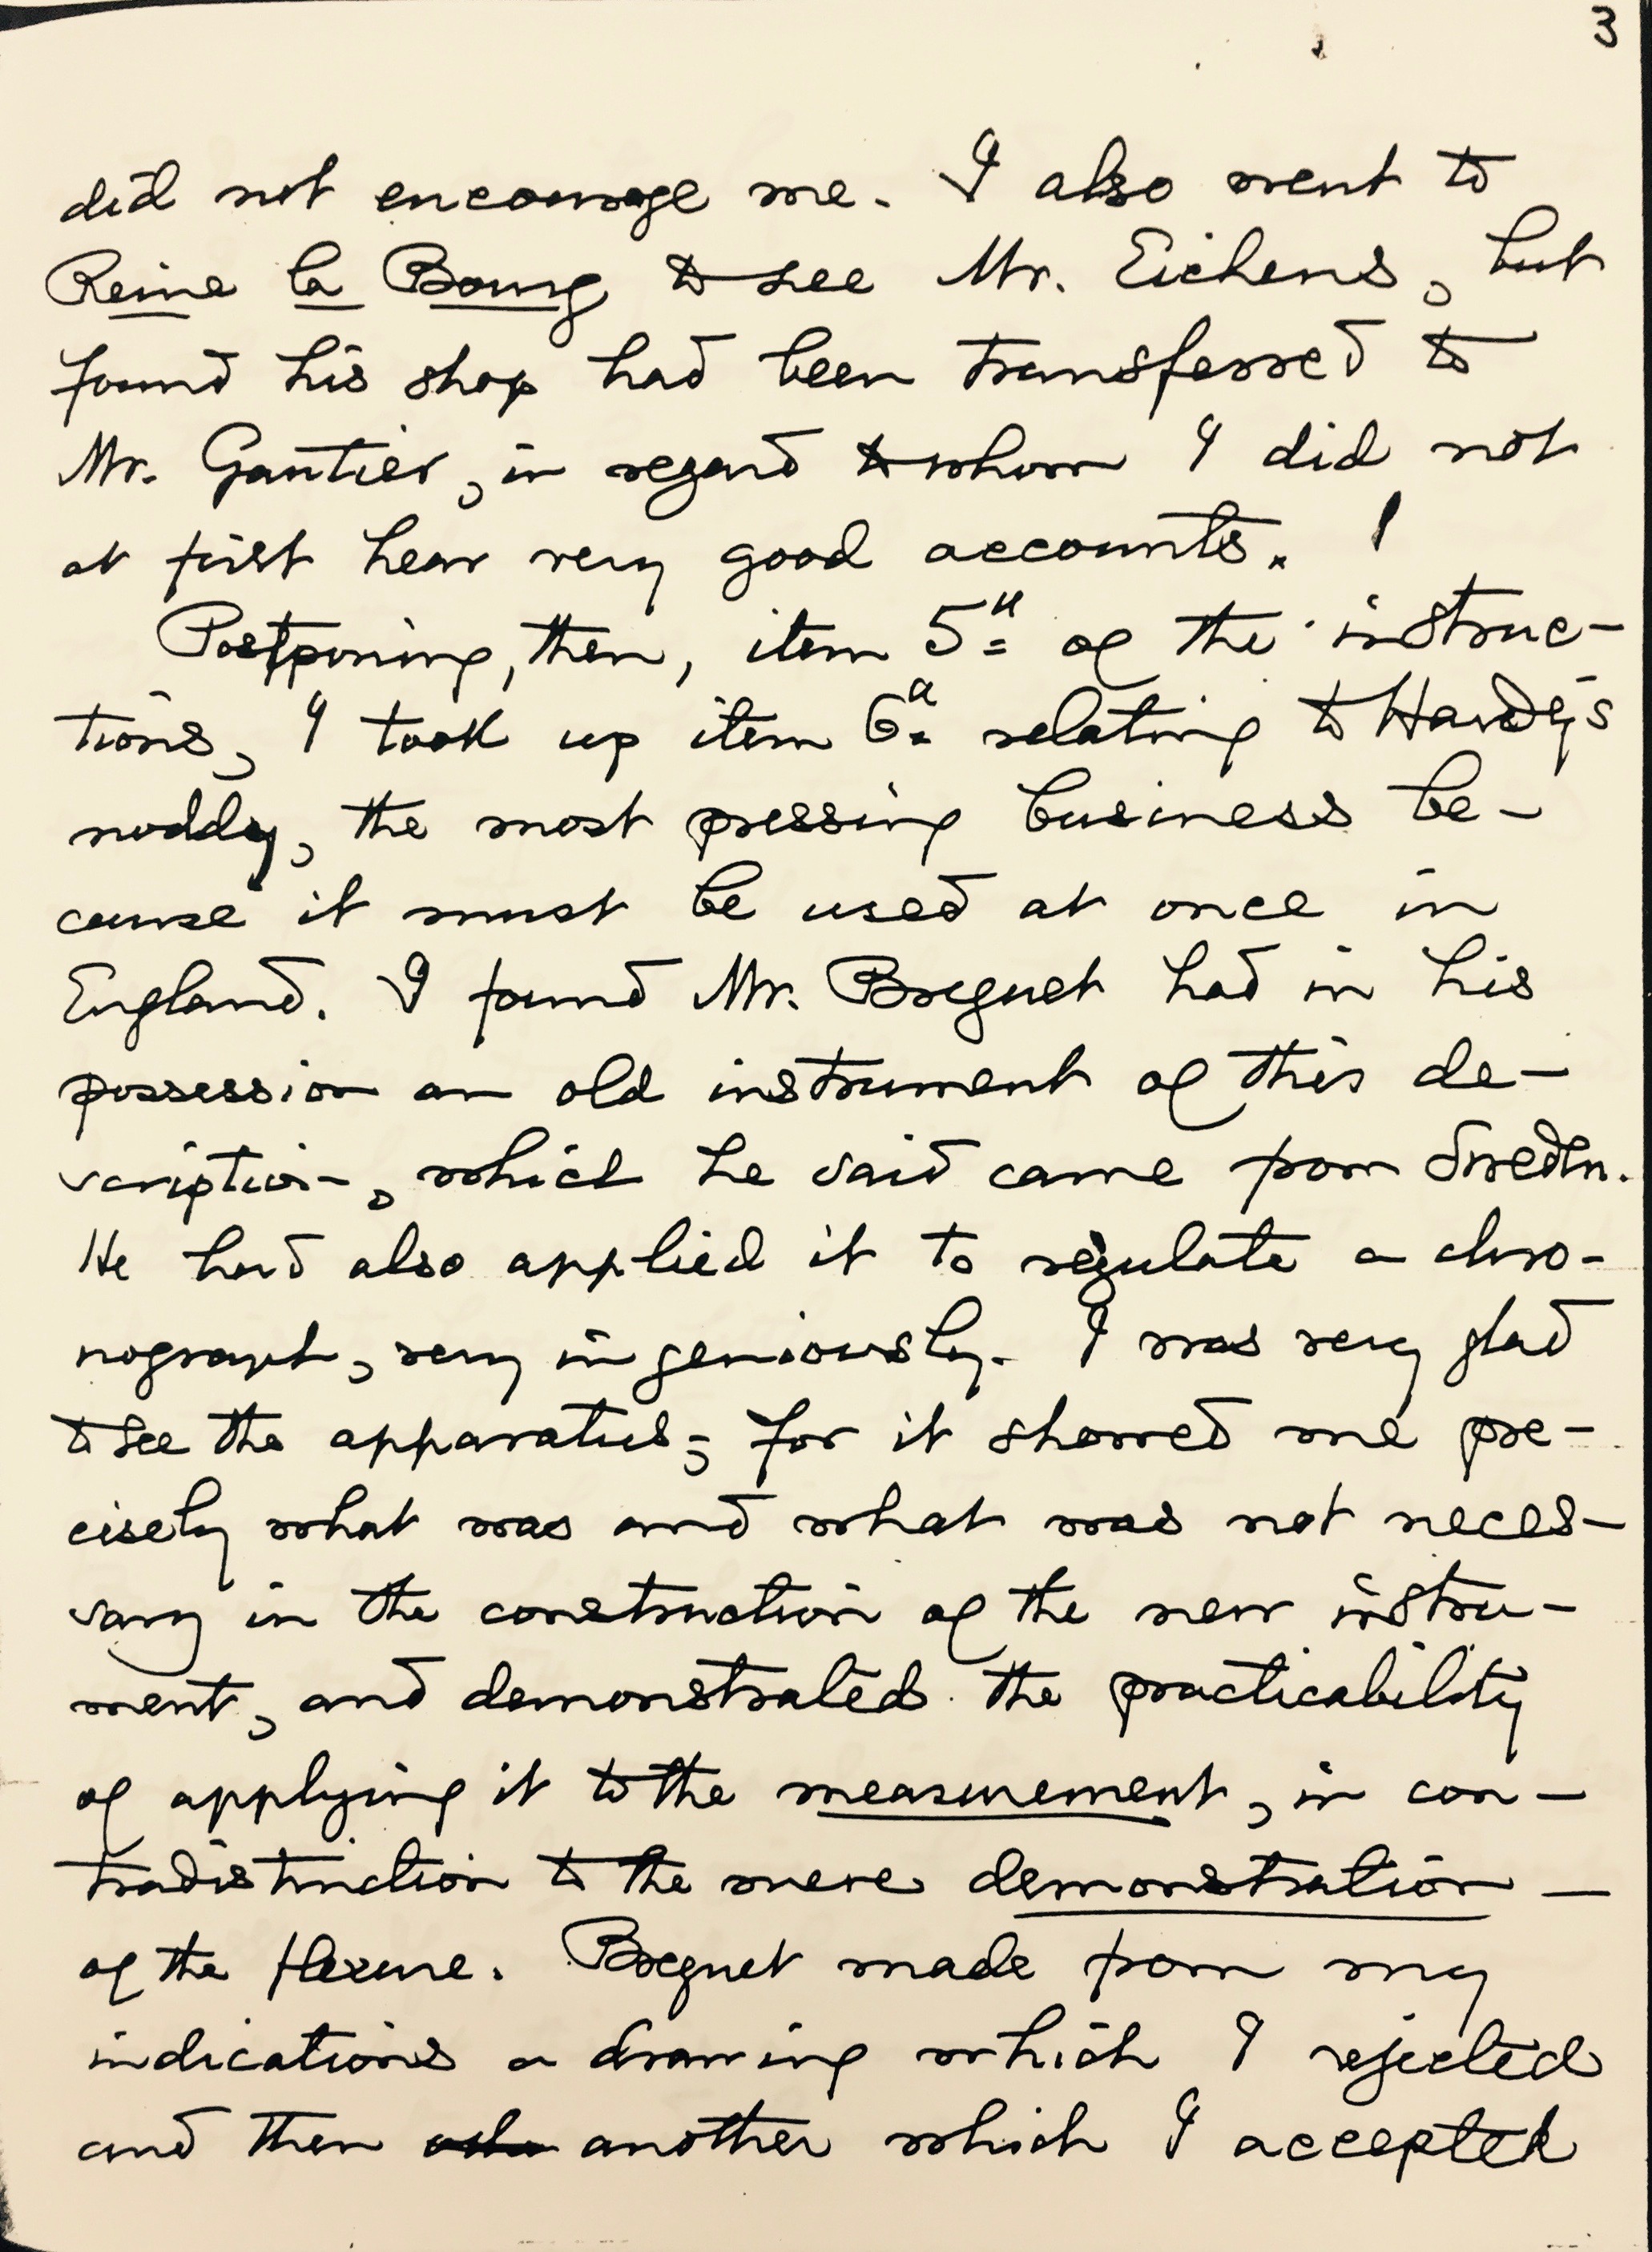 3
did not encourage me. I also went to
Reine la Bourg to see Mr. Eichens, but
found his shop had been transferred to
Mr. Gautier, in regard to whom I did not
at first hear very good accounts.
Postponing, then, item 5 of the instruc-
tions, I took up item 6 relating to Hardy's
noddy, the most pressing business be-
cause it must be used at once in
England. I found Mr. Breguet had in his
possession an old instrument of this de-
scription, which he said came from Sweden.
He had also applied it to regulate a chro-
nograph, very ingeniously. I was very glad
to see the apparatus; for it showed me pre-
cisely what was and what was not neces-
sary in the construction of the new instru-
ment, and demonstrated the practicability
of applying it to the measurement, in con-
tradistinction to the mere demonstration —
of the flexure. Breguet made from my
indications a drawing which I rejected
and then another which I accepted